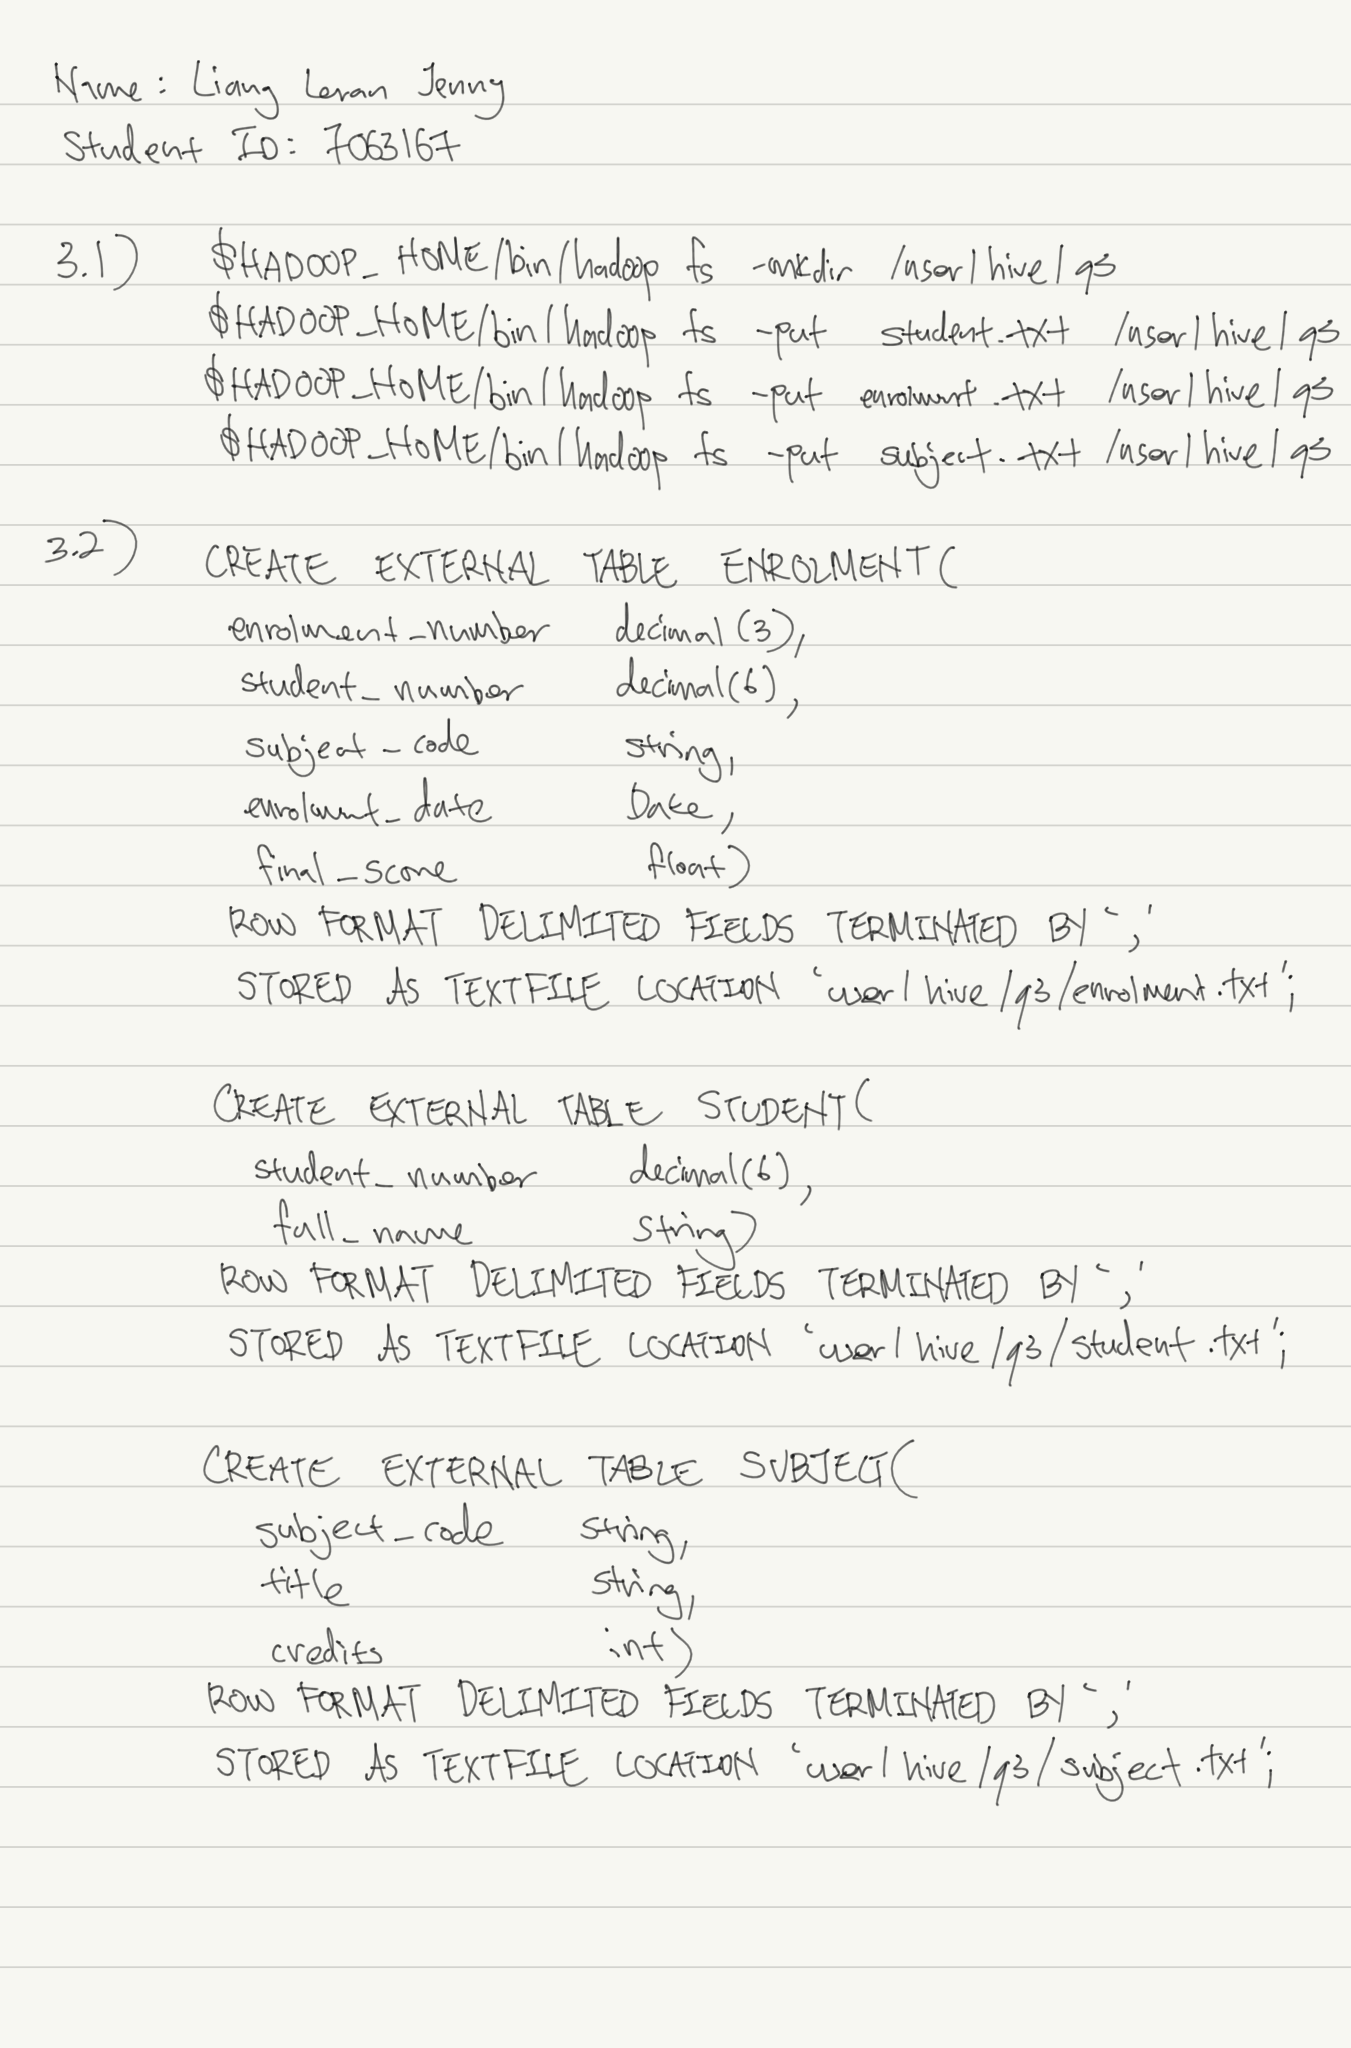 Name: Liang Leran Jenny
Student ID: 7063167
3.1) $HADOOP_HOME/bin/hadoop fs -mkdir /user/hive/q3
$HADOOP_HOME/bin/hadoop fs -put student.txt /user/hive/q3
$HADOOP_HOME/bin/hadoop fs -put enrolment.txt /user/hive/q3
$HADOOP_HOME/bin/hadoop fs -put subject.txt /user/hive/q3
3.2) CREATE EXTERNAL TABLE ENROLMENT(
enrolment_number decimal(3),
student_number decimal(6),
subject_code string,
enrolment_date Date,
final_score float)
ROW FORMAT DELIMITED FIELDS TERMINATED BY ','
STORED AS TEXTFILE LOCATION 'user/hive/q3/enrolment.txt';
CREATE EXTERNAL TABLE STUDENT(
student_number decimal(6),
full_name string)
ROW FORMAT DELIMITED FIELDS TERMINATED BY ','
STORED AS TEXTFILE LOCATION 'user/hive/q3/student.txt';
CREATE EXTERNAL TABLE SUBJECT(
subject_code string,
title string,
credits int)
ROW FORMAT DELIMITED FIELDS TERMINATED BY ','
STORED AS TEXTFILE LOCATION 'user/hive/q3/subject.txt';